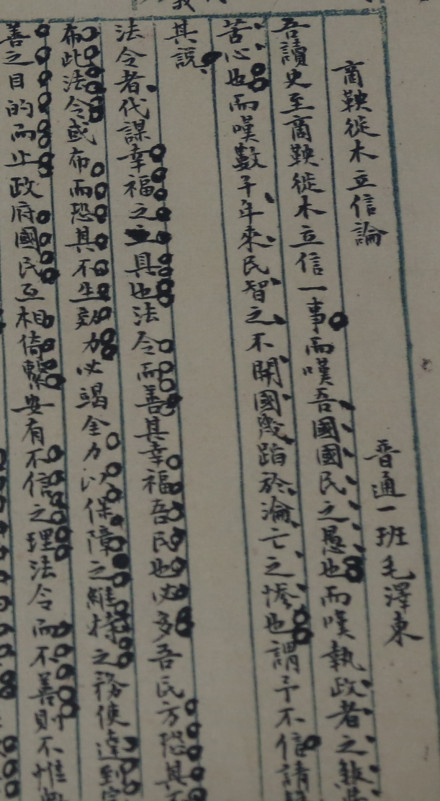 商鞅徙木立信論
普通一班毛澤東
吾讀史至商鞅徙木立信一事而嘆吾國國民之愚也而嘆執政者之
苦心也而嘆數千年來民智之不開國幾蹈於淪亡之慘也謂予不信請
其說
法令者代謀幸福之具也法令而善其幸福吾民也必多吾民方恐其不
布此法令或布而恐其不生効力必竭全力以保障之維持之務使達到完
善之目的而止政府國民互相倚繫安有不信之理法令而不善則不惟